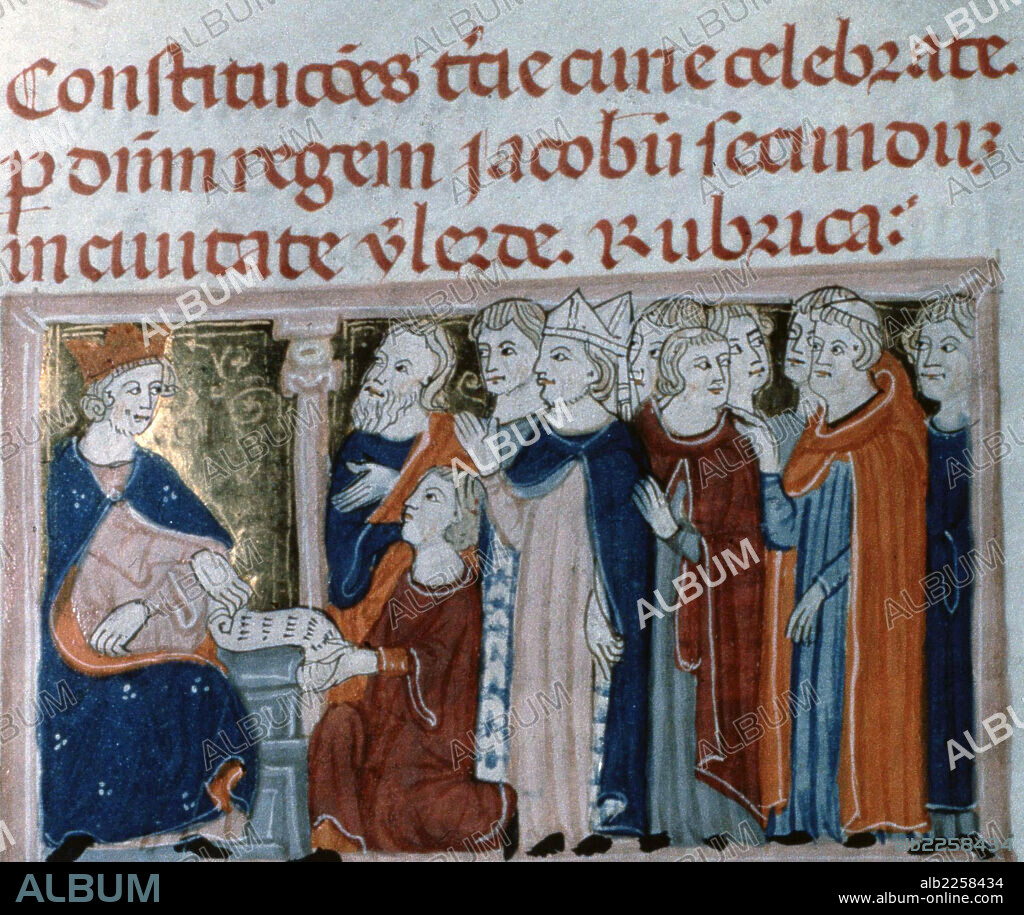 Constitucōēs t̄cie curie celebrate.
p dn̄m regem Jacobū secunduz
in ciuitate ỷlerde. Rubrica:
ALBUM
ab2258434
alb2258434
www.album-online.com